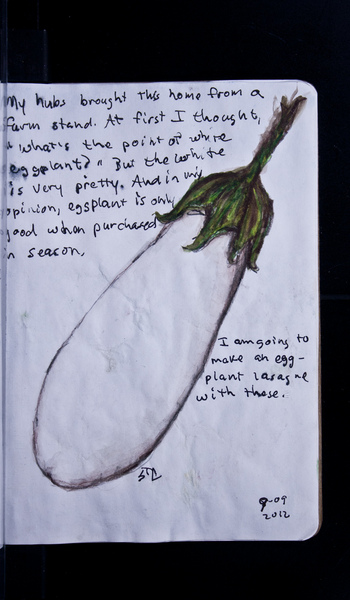 My hubs brought this home from a
farm stand. At first I thought,
"what's the point of white
eggplant?" But the white
is very pretty. And in my
opinion, eggplant is only
good when purchased
in season.
I am going to
make an egg-
plant lasagne
with these.
9-09
2012